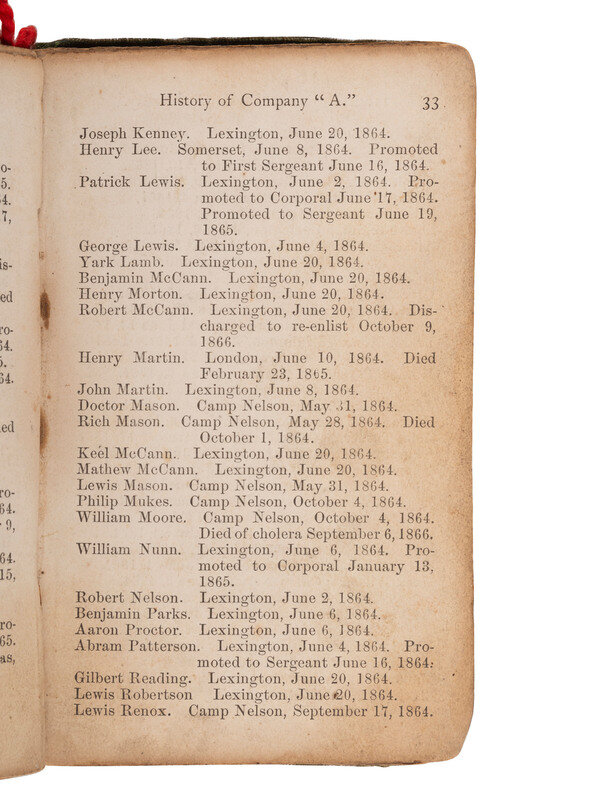 History of Company “ A.” 33
Joseph Kenney. Lexington, June 20, 1864.
Henry Lee. Somerset, June 8, 1864. Promoted
to First Sergeant June 16, 1864.
Patrick Lewis. Lexington, June 2, 1864. Pro-
moted to Corporal June 17, 1864.
Promoted to Sergeant June 19,
1865.
George Lewis. Lexington, June 4, 1864.
Yark Lamb. Lexington, June 20, 1864.
Benjamin McCann. Lexington, June 20, 1864.
Henry Morton. Lexington, June 20, 1864.
Robert McCann. Lexington, June 20, 1864. Dis-
charged to re-enlist October 9,
1866.
Henry Martin. London, June 10, 1864. Died
February 23, 1865.
John Martin. Lexington, June 8, 1864.
Doctor Mason. Camp Nelson, May 31, 1864.
Rich Mason. Camp Nelson, May 28, 1864. Died
October 1, 1864.
Keel McCann. Lexington, June 20, 1864.
Mathew McCann. Lexington, June 20, 1864.
Lewis Mason. Camp Nelson, May 31, 1864.
Philip Mukes. Camp Nelson, October 4, 1864.
William Moore. Camp Nelson, October 4, 1864.
Died of cholera September 6, 1866.
William Nunn. Lexington, June 6, 1864. Pro-
moted to Corporal January 13,
1865.
Robert Nelson. Lexington, June 2, 1864.
Benjamin Parks. Lexington, June 6, 1864.
Aaron Proctor. Lexington, June 6, 1864.
Abram Patterson. Lexington, June 4, 1864. Pro-
moted to Sergeant June 16, 1864.
Gilbert Reading. Lexington, June 20, 1864.
Lewis Robertson Lexington, June 20, 1864.
Lewis Renox. Camp Nelson, September 17, 1864.